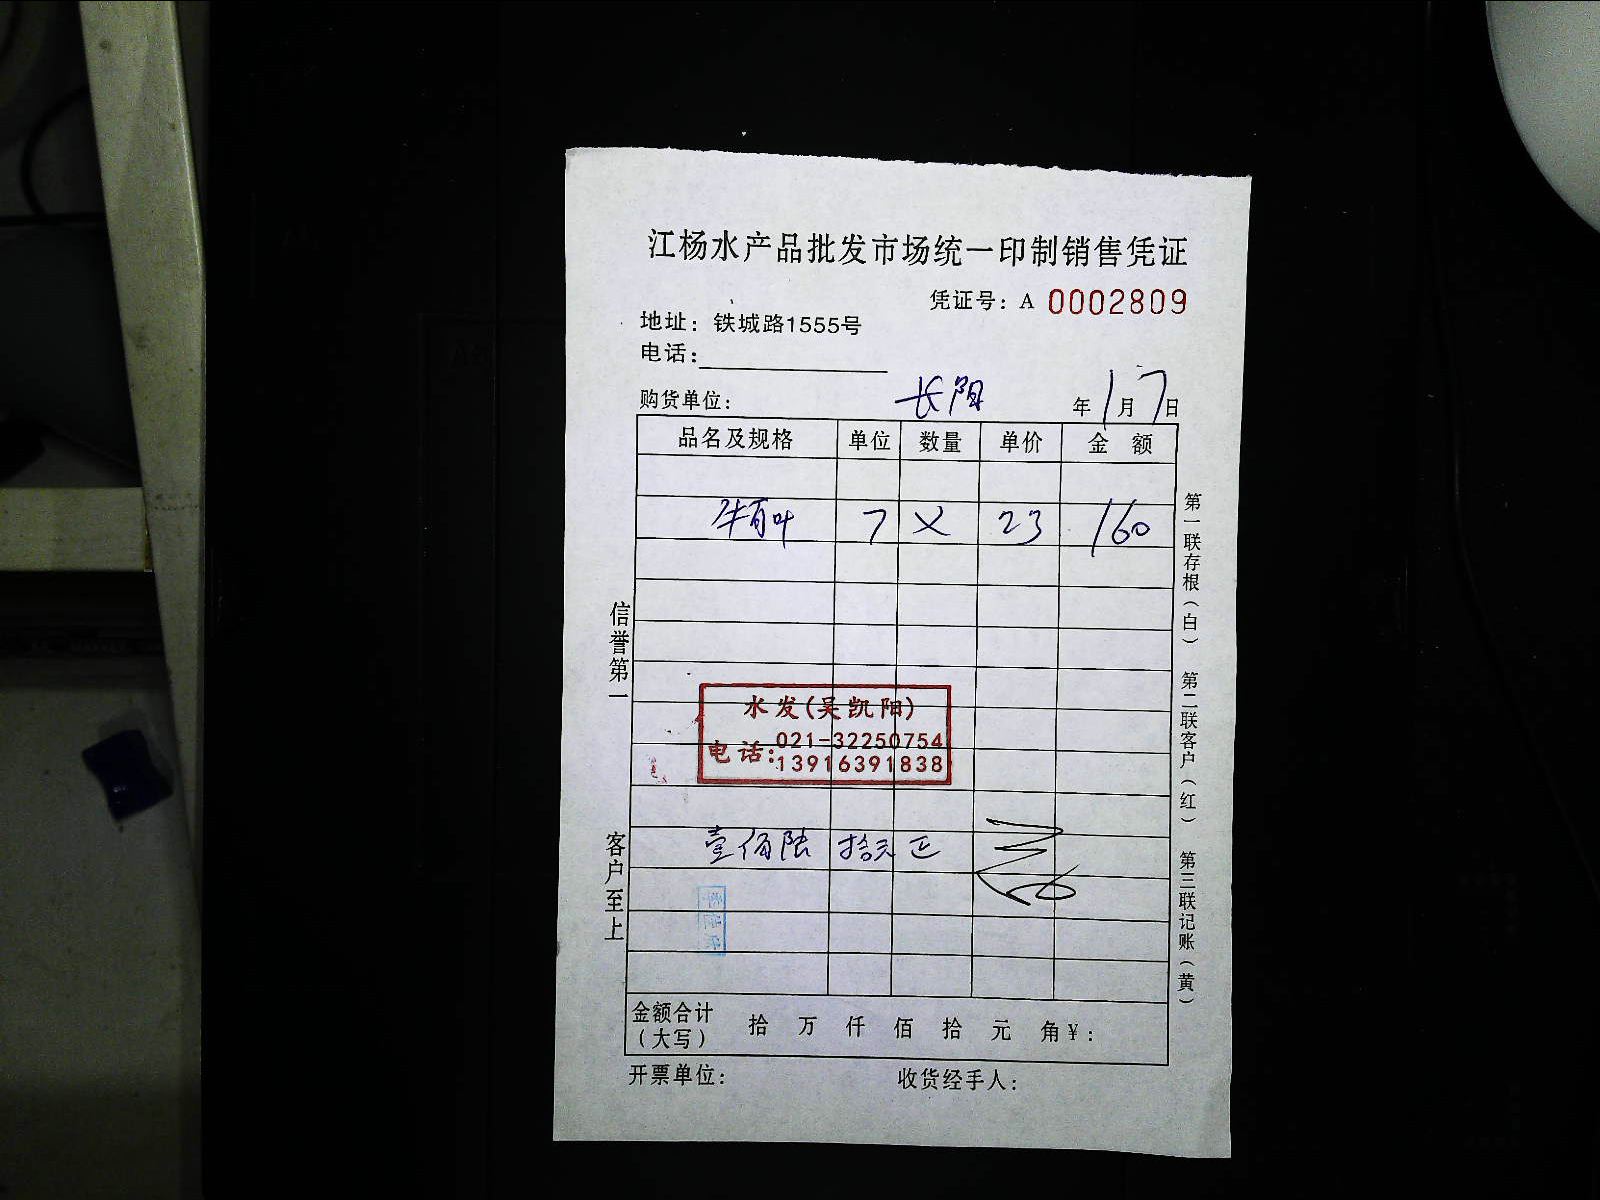 江杨水产品批发市场统一印制销售凭证
凭证号：A 0002809
地址：铁城路1555号
电话：
购货单位： 长阳 年 1 月 7 日
品名及规格 单位 数量 单价 金额
牛百叶 7 × 23 160
水发(吴凯阳)
电话：021-32250754
13916391838
壹佰陆拾元正
金额合计（大写） 拾 万 仟 佰 拾 元 角 ¥：
开票单位： 收货经手人：
信誉第一
客户至上
第一联存根（白） 第二联客户（红） 第三联记账（黄）